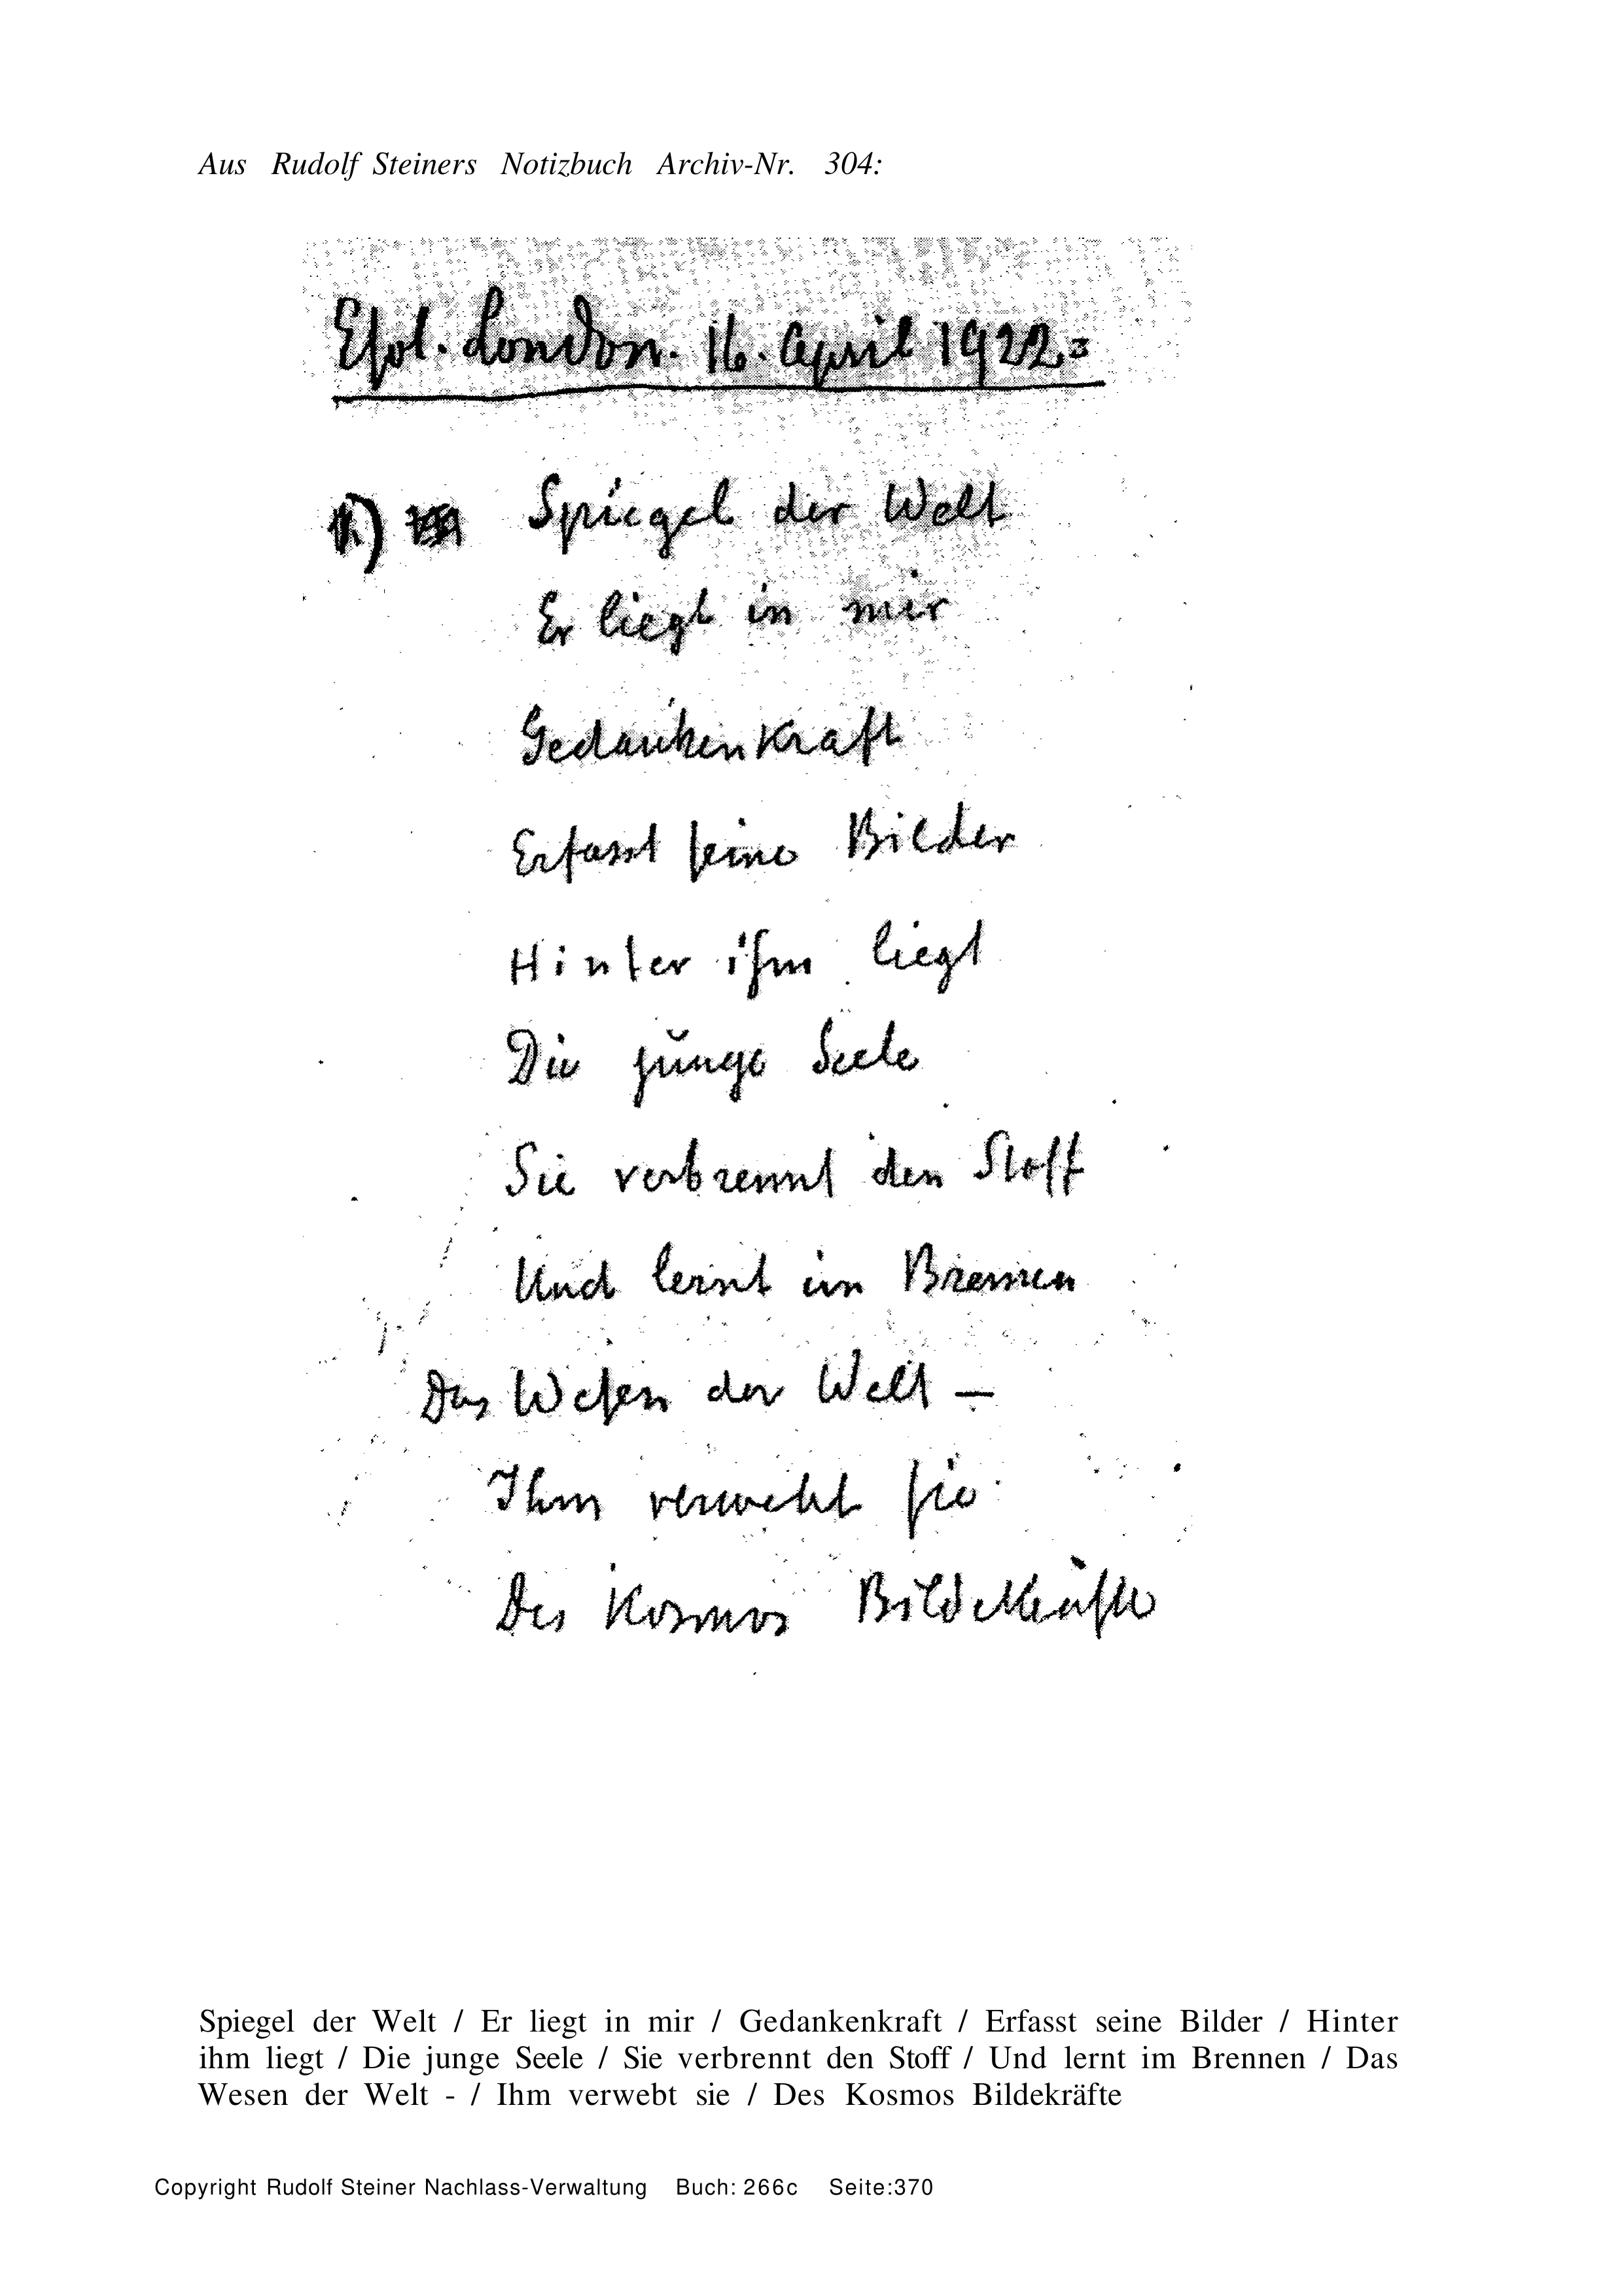 Aus Rudolf Steiners Notizbuch Archiv-Nr. 304:
Esot. London. 16. April 1922 =
1.) Spiegel der Welt
Er liegt in mir
Gedankenkraft
Erfasst seine Bilder
Hinter ihm liegt
Die junge Seele
Sie verbrennt den Stoff
Und lernt im Brennen
Das Wesen der Welt —
Ihm verwebt sie
Des Kosmos Bildekräfte
Spiegel der Welt / Er liegt in mir / Gedankenkraft / Erfasst seine Bilder / Hinter
ihm liegt / Die junge Seele / Sie verbrennt den Stoff / Und lernt im Brennen / Das
Wesen der Welt - / Ihm verwebt sie / Des Kosmos Bildekräfte
Copyright Rudolf Steiner Nachlass-Verwaltung Buch: 266c Seite:370